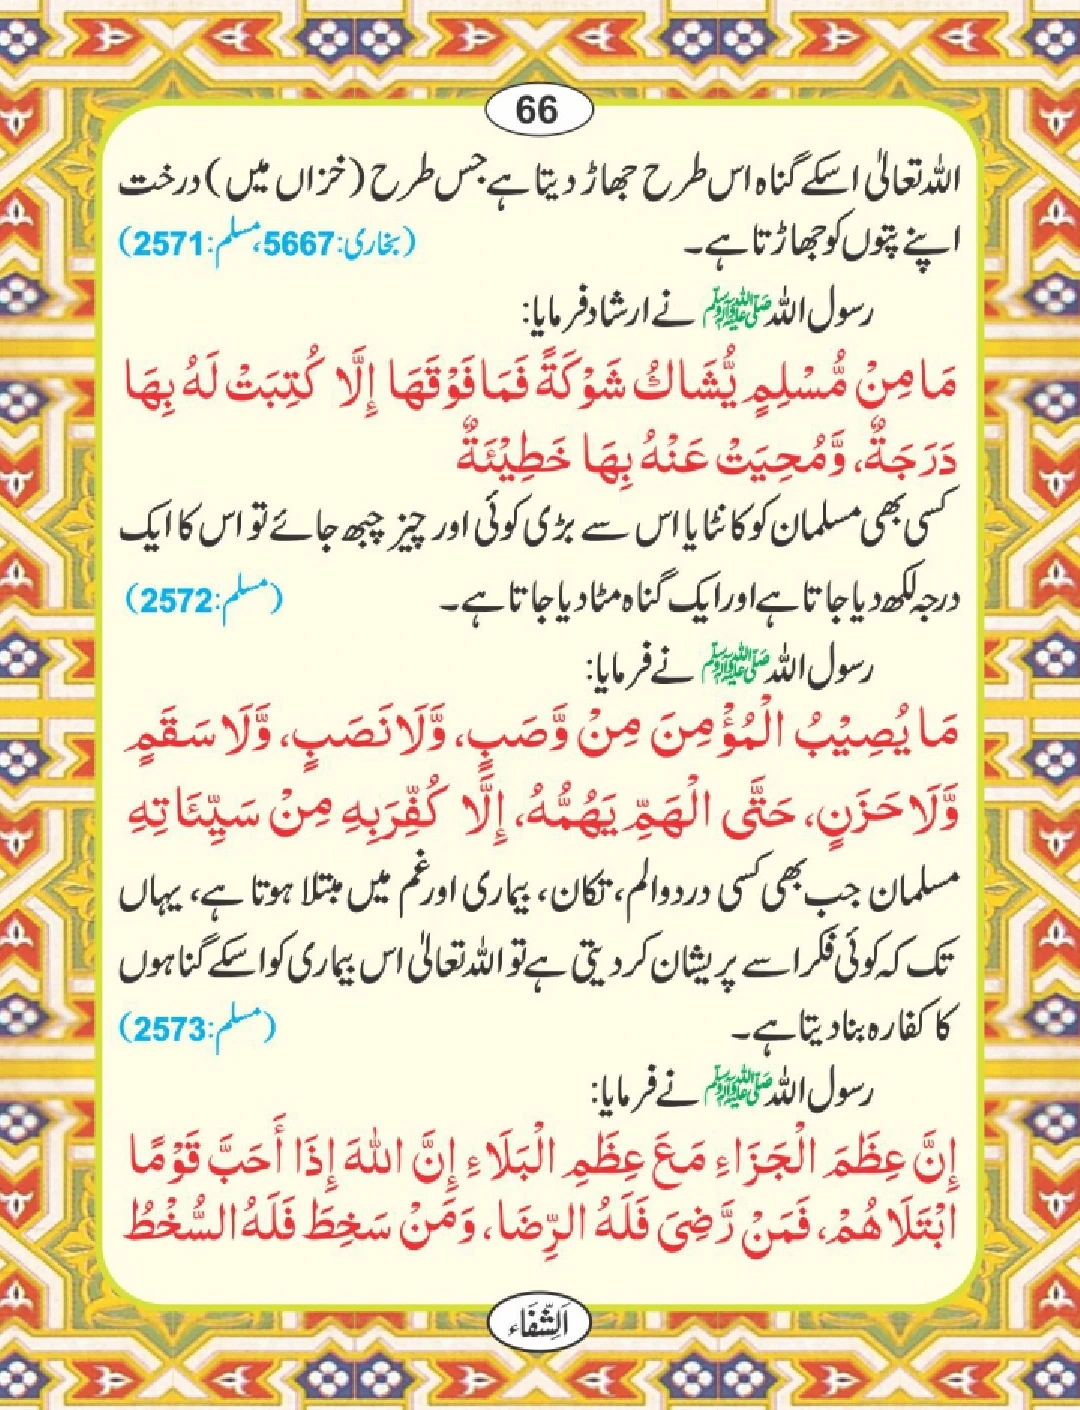 66
اللہ تعالیٰ اسکے گناہ اس طرح جھاڑ دیتا ہے جس طرح (خزاں میں) درخت
اپنے پتوں کو جھاڑتا ہے۔ (بخاری:5667، مسلم:2571)
رسول اللہ ﷺ نے ارشاد فرمایا:
مَا مِنْ مُّسْلِمٍ يُّشَاكُ شَوْكَةً فَمَا فَوْقَهَا إِلَّا كُتِبَتْ لَهُ بِهَا
دَرَجَةٌ، وَّمُحِيَتْ عَنْهُ بِهَا خَطِيْئَةٌ
کسی بھی مسلمان کو کانٹا یا اس سے بڑی کوئی اور چیز چبھ جائے تو اس کا ایک
درجہ لکھ دیا جاتا ہے اور ایک گناہ مٹا دیا جاتا ہے۔ (مسلم:2572)
رسول اللہ ﷺ نے فرمایا:
مَا يُصِيْبُ الْمُؤْمِنَ مِنْ وَّصَبٍ، وَّلَا نَصَبٍ، وَّلَا سَقَمٍ
وَّلَا حَزَنٍ، حَتَّى الْهَمِّ يَهُمُّهُ، إِلَّا كُفِّرَ بِهِ مِنْ سَيِّئَاتِهِ
مسلمان جب بھی کسی درد و الم، تکان، بیماری اور غم میں مبتلا ہوتا ہے، یہاں
تک کہ کوئی فکر اسے پریشان کر دیتی ہے تو اللہ تعالیٰ اس بیماری کو اسکے گناہوں
کا کفارہ بنا دیتا ہے۔ (مسلم:2573)
رسول اللہ ﷺ نے فرمایا:
إِنَّ عِظَمَ الْجَزَاءِ مَعَ عِظَمِ الْبَلَاءِ إِنَّ اللهَ إِذَا أَحَبَّ قَوْمًا
ابْتَلَاهُمْ، فَمَنْ رَّضِيَ فَلَهُ الرِّضَا، وَمَنْ سَخِطَ فَلَهُ السُّخْطُ
اَلشِّفَاء